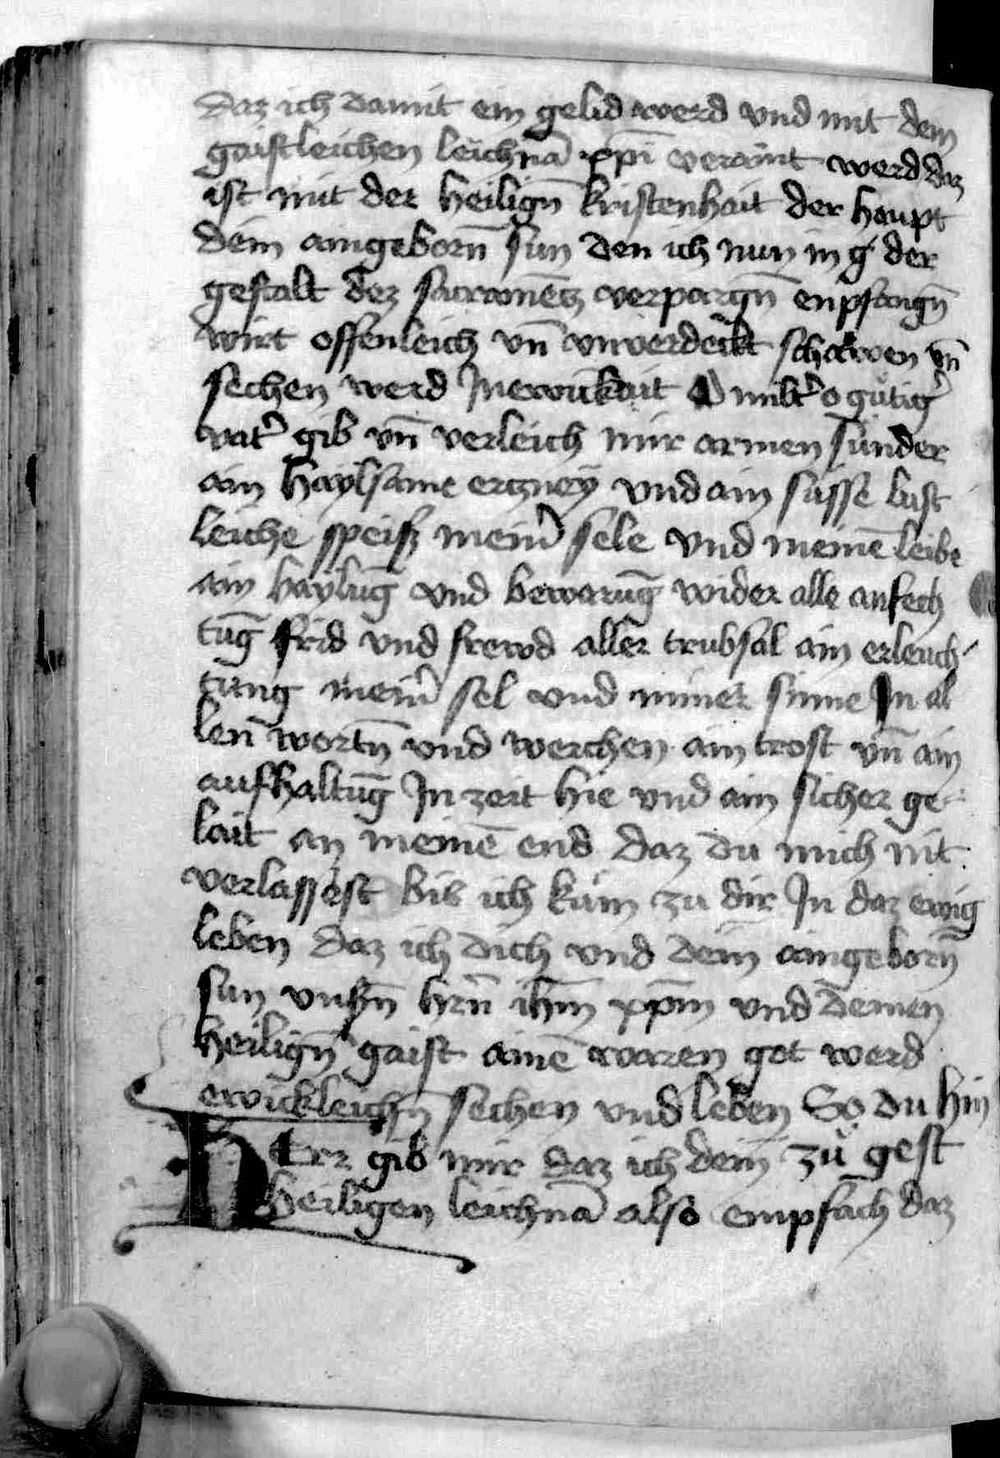 daz ich damit ein gelid werd vnd mit dem
gaistleichen leichnā xp̄i veraint werd daz
ist mit der heilign̄ kristenhait der haupt
dein aingeborn̄ sun den ich nun in der
gestalt dez sacramētz verporgn̄ enpfangn̄
wirt offenleich vn̄ vnverdeckt schawen vn̄
sechen werd In ewikait O milt' o gütig'
vat' gib vn̄ verleich mir armen sunder
ain haylsame erczney vnd ain süsse lust
leiche speisz mein' sele vnd meinē leibe
ain haylūg vnd bewarūg wider alle anfech
tūg frid vnd frewd aller trubsal ain erleuch-
tung mein' sel vnd miner sinne In al
len wortn̄ vnd werchen ain trost vn̄ ain
aufhaltūg In zeit hie vnd ain sicher ge=
lait an meinē end daz du mich nit
verlassest bis ich kum zu dir In daz ewig
leben daz ich dich vnd dein aingeborn̄
sun vnsn̄ hrn̄ ihm̄ xp̄m vnd deinen
heilign̄ gaist ainē waren got werd
ewickleichn̄ sechen vnd leben So du hin
HErr gib mir daz ich dein zů gest
heiligen leichnā also empfach daz